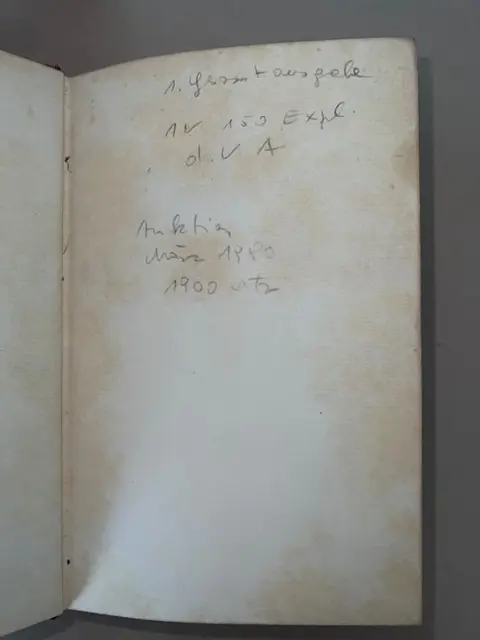 1. Gesamtausgabe
1 v 150 Expl.
d. V A
Auktion
März 1980
1900